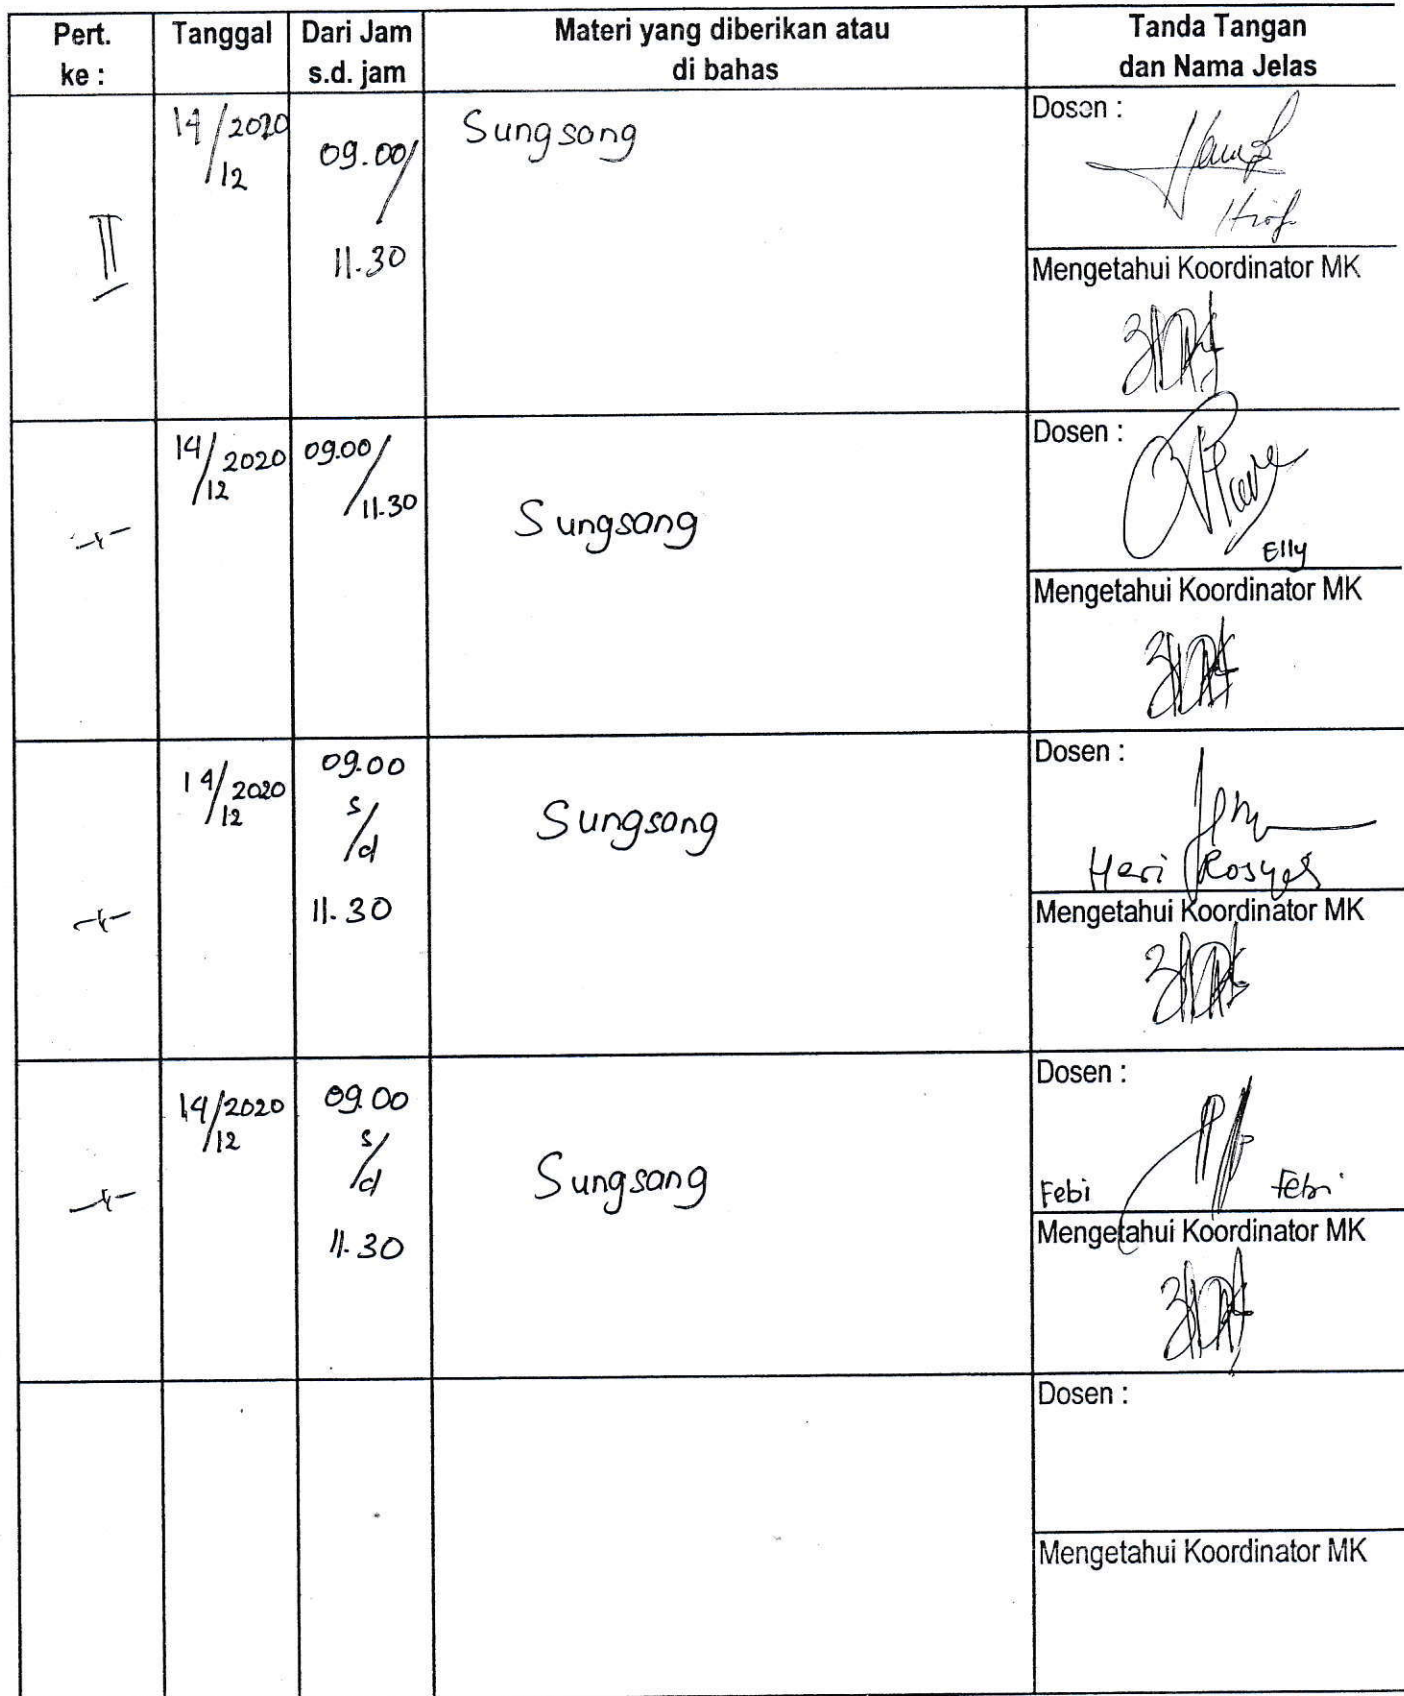 Pert. ke :
Tanggal
Dari Jam s.d. jam
Materi yang diberikan atau di bahas
Tanda Tangan dan Nama Jelas
II
14/12 2020
09.00/
11.30
Sungsang
Dosen :
Mengetahui Koordinator MK
14/12 2020
09.00/11.30
Sungsang
Dosen :
Elly
Mengetahui Koordinator MK
14/12 2020
09.00
s/d
11.30
Sungsang
Dosen :
Heri
Mengetahui Koordinator MK
14/12 2020
09.00
s/d
11.30
Sungsang
Dosen :
Febi
Mengetahui Koordinator MK
Dosen :
Mengetahui Koordinator MK